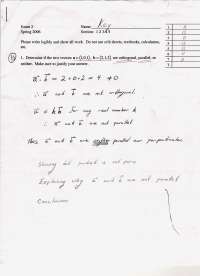 Exam 2
Name: Key
Spring 2006
Section: 1 2 3 4 5
Please write legibly and show all work. Do not use cell phones, textbooks, calculators, etc.
1. Determine if the two vectors
are orthogonal, parallel, or
neither. Make sure to justify your answer.
= 2 + 0 + 2 = 4 ≠ 0
∴ a and b are not orthogonal.
a ≠ k b for any real number k
∴ a and b are not parallel.
Thus a and b are neither parallel nor perpendicular.
dot product is not zero
Explaining why a and b are not parallel
Conclusion